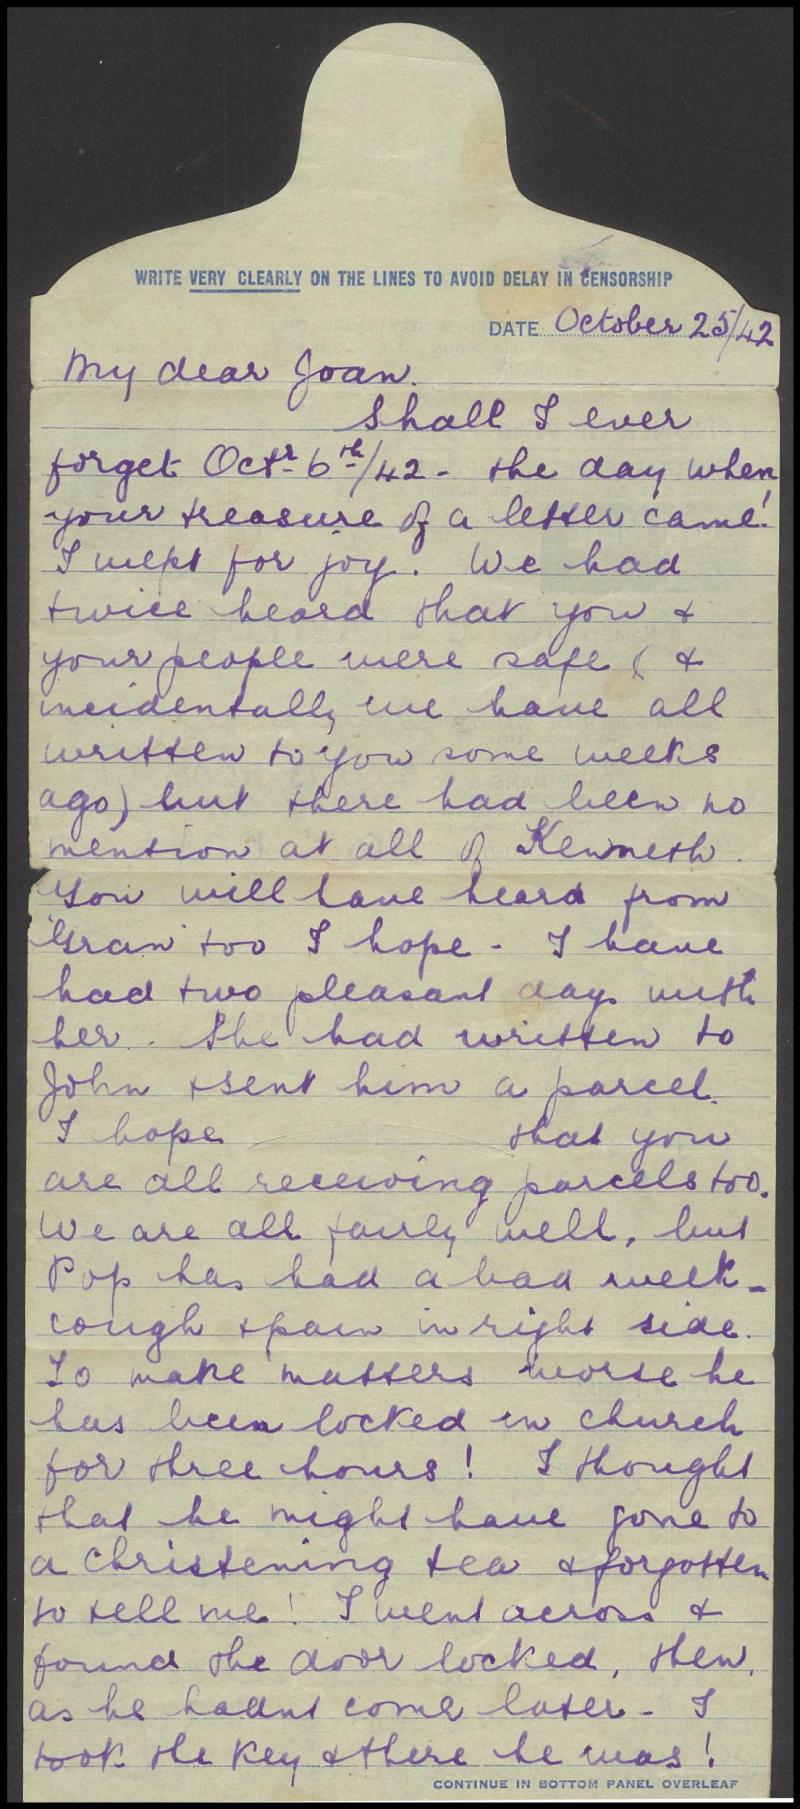 WRITE VERY CLEARLY ON THE LINES TO AVOID DELAY IN CENSORSHIP
DATE October 25/42
My dear Joan.
Shall I ever
forget Octr 6th/42 - the day when
your treasure of a letter came!
I wept for joy. We had
twice heard that you &
your people were safe (&
incidentally we have all
written to you some weeks
ago) but there had been no
mention at all of Kenneth.
You will have heard from
'Gran' too I hope - I have
had two pleasant days with
her. She had written to
John & sent him a parcel.
I hope that you
are all receiving parcels too.
We are all fairly well, but
Pop has had a bad week -
cough & pain in right side.
To make matters worse he
has been locked in church
for three hours! I thought
that he might have gone to
a christening tea & forgotten
to tell me! I went across &
found the door locked, then,
as he hadnt come later - I
took the key & there he was!
CONTINUE IN BOTTOM PANEL OVERLEAF